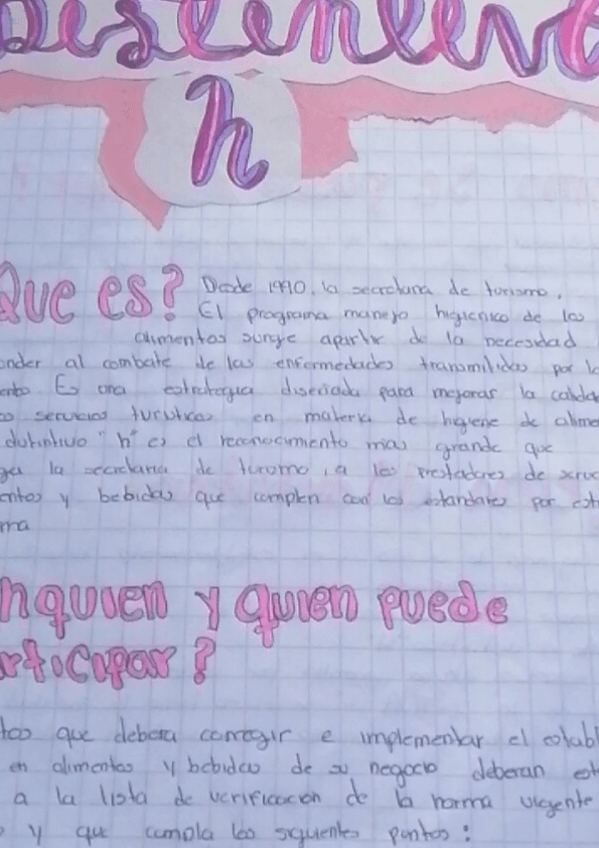 Distintivo
h
Que es? Desde 1990, la secretaria de turismo,
El programa manejo higienico de los
alimentos surge apartir de la necesidad
onder al combate de las enfermedades transmitidas por lo
ento Es una estrategia diseñada para mejorar la calida
os servicios turisticos en materia de higiene de alime
distintivo "h" es el reconocimiento mas grande que
ga la secretaria de turismo, a los prestadores de
entos y bebidas que complen con los estandares por est
rma
nquien y quien puede
rticipar?
tos que debera corregir e implementar el establ
en alimentos y bebidas de su negocio deberan est
a la lista de verificacion de la norma vigente
y que cumpla los siguientes puntos: